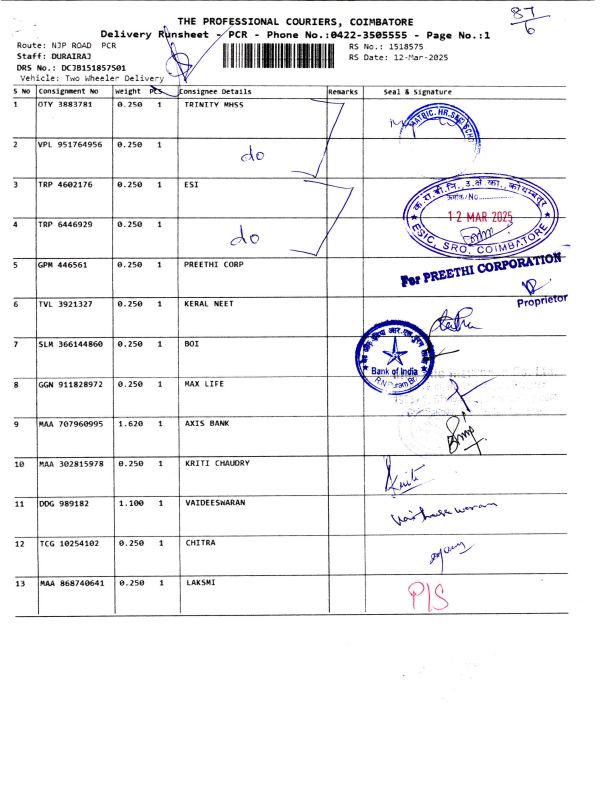 THE PROFESSIONAL COURIERS, COIMBATORE
87/6
Delivery Runsheet - PCR - Phone No.:0422-3505555 - Page No.:1
Route: NJP ROAD PCR
RS No.: 1518575
Staff: DURAIRAJ
RS Date: 12-Mar-2025
DRS No.: DCJB151857501
Vehicle: Two Wheeler Delivery
S No Consignment No Weight PCS Consignee Details Remarks Seal & Signature
1 OTY 3883781 0.250 1 TRINITY MHSS
MATRIC. HR. SEC SCHO
2 VPL 951764956 0.250 1 do
3 TRP 4602176 0.250 1 ESI
क.रा.बी.नि., उ.क्षे.का., कोयम्बतूर
क्रमांक/No
12 MAR 2025
ESIC, SRO, COIMBATORE
4 TRP 6446929 0.250 1 do
5 GPM 446561 0.250 1 PREETHI CORP
For PREETHI CORPORATION
Proprietor
6 TVL 3921327 0.250 1 KERAL NEET
7 SLM 366144860 0.250 1 BOI
Bank of India
R.N.Puram Br.
8 GGN 911828972 0.250 1 MAX LIFE
9 MAA 707960995 1.620 1 AXIS BANK
10 MAA 302815978 0.250 1 KRITI CHAUDRY
Kriti
11 DDG 989182 1.100 1 VAIDEESWARAN
Vaideeswaran
12 TCG 10254102 0.250 1 CHITRA
13 MAA 868740641 0.250 1 LAKSMI
P/S